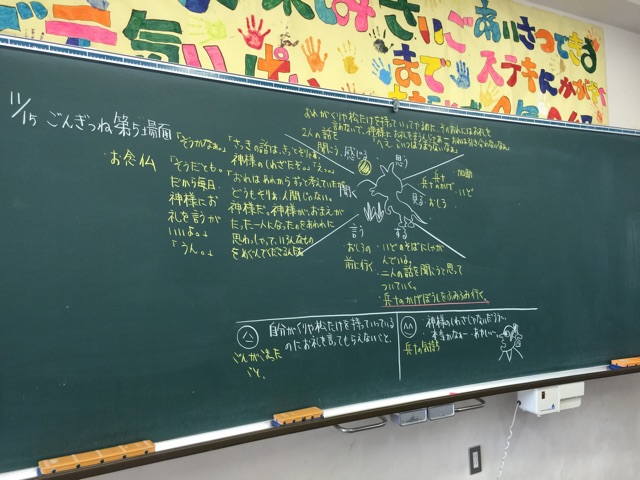 楽しみ さいご あいさつできる
元気いっぱい まで ステキに
11/15 ごんぎつね 第5場面
お念仏
「そうかなあ。」
「そうだとも。
だから毎日、
神様にお
礼を言うが
いいよ。」
「うん。」
「さっきの話は、きっとそりゃあ、
神様のしわざだぞ。」「えっ。」
「おれはあれからずっと考えていたが、
どうもそりゃ人間じゃない。
神様だ。神様が、おまえが
たった一人になったのをあわれに
思わっしゃって、いろんなもの
をめぐんでくださるんだよ。」
おれがくりや松たけを持っていってやるのに、そのおれにはお礼を
言わないで、神様にお礼を言うんじゃあおれは引き合わないなあ。
へえ、こいつはつまらないな。
2人の話を
聞こう。
感じる
思う
聞く
見る
言う
する
兵十
加助
兵十のかげ
いど
おしろ
・おしろの
前に行く
・いどのそばにしゃが
んでいる。
・二人の話を聞こうと思って
ついていく。
・兵十のかげぼうしをふみふみ行く。
自分がくりや松たけを持っていっている
のにお礼を言ってもらえないこと。
ごんが
こと。
神様のしわざじゃないだろう。
本当かなぁー
兵十の気持ち